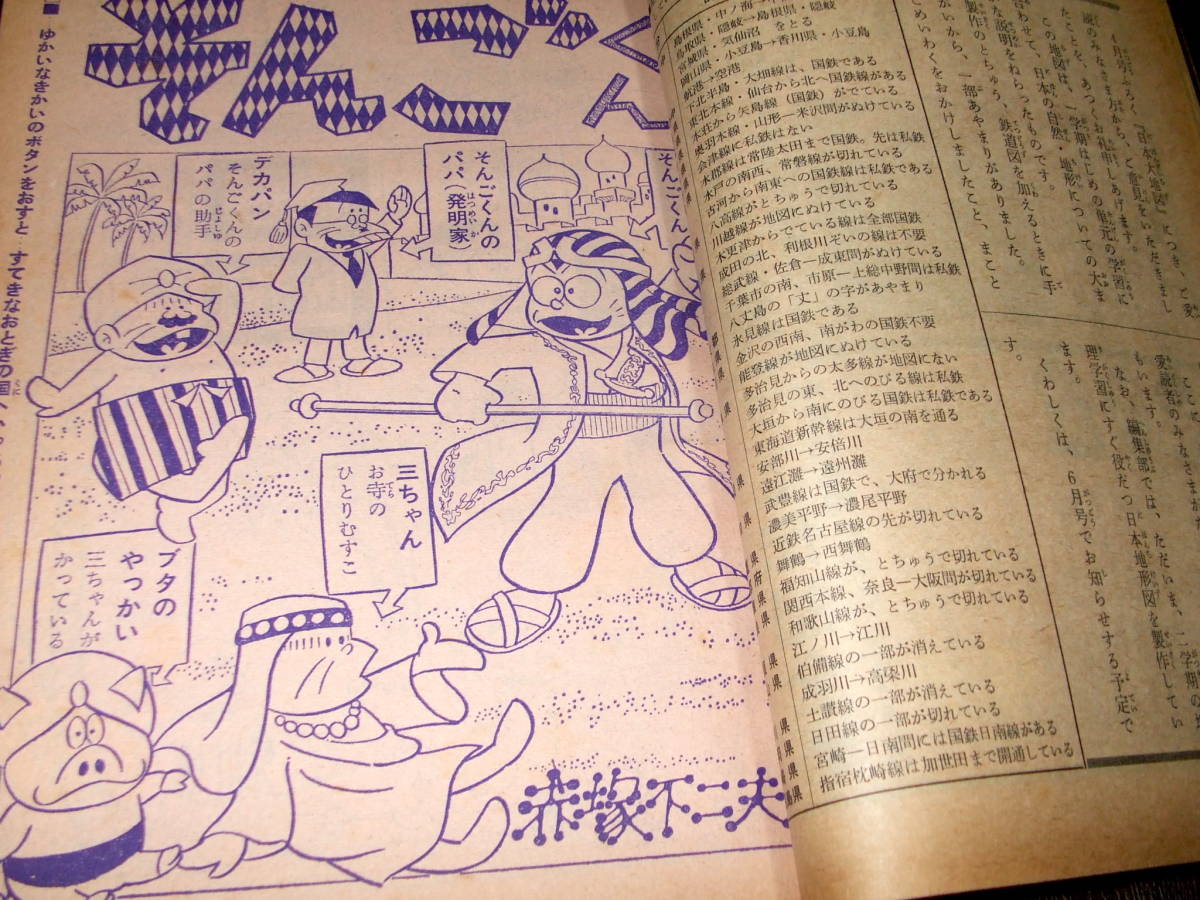 そんごくん
■ゆかいなきかいのボタンをおすと…すてきなおとぎの国へ
そんごくん
そんごくんの
パパ(発明家)
デカパン
そんごくんの
パパの助手
三ちゃん
お寺の
ひとりむすこ
ブタの
やっかい
三ちゃんが
かっている
赤塚不二夫
4月号ふろく『日本大地図』につき、ご愛
読のみなさまがたから、ご意見をいただきまし
たことを、あつくお礼申しあげます。
この地図は、一学期はじめの単元の学習に
合わせて、日本の自然・地形についての大ま
かな説明をねらったものです。
製作のとちゅう、鉄道図を加えるときに手
ちがいから、一部あやまりがありました。
ごめいわくをおかけしましたこと、まこと
す。
愛読者のみなさまが
もいます。
なお、編集部では、ただいま、二学期の
理学習にすぐ役だつ日本地形図を製作してい
ます。
くわしくは、6月号でお知らせする予定で
島根県・中ノ海→中
鳥取県・隠岐→島根県・隠岐
宮城県・気仙沼 をとる
岡山県・小豆島→香川県・小豆島
航港→空港
下北半島・大畑線は、国鉄である
東北本線・仙台から北へ国鉄線がある
本荘から矢島線(国鉄)がでている
奥羽本線・山形―米沢間がぬけている
会津線に私鉄はない
水郡線は常陸太田まで国鉄。先は私鉄
水戸の南西、常磐線が切れている
古河から南東への国鉄線は私鉄である
八高線がとちゅうで切れている
川越線が地図にぬけている
木更津からでている線は全部国鉄
成田の北、利根川ぞいの線は不要
総武線・佐倉―成東間がぬけている
千葉市の南、市原―上総中野間は私鉄
八丈島の「丈」の字があやまり
氷見線は国鉄である
金沢の西南、南がわの国鉄不要
能登線が地図にぬけている
多治見からの太多線が地図にない
多治見の東、北へのびる線は私鉄
大垣から南にのびる国鉄は私鉄である
東海道新幹線は大垣の南を通る
安部川→安倍川
遠江灘→遠州灘
武豊線は国鉄で、大府で分かれる
濃美平野→濃尾平野
近鉄名古屋線の先が切れている
舞鶴→西舞鶴
福知山線が、とちゅうで切れている
関西本線、奈良―大阪間が切れている
和歌山線が、とちゅうで切れている
江ノ川→江川
伯備線の一部が消えている
成羽川→高梁川
土讃線の一部が消えている
日田線の一部が切れている
宮崎―日南間には国鉄日南線がある
指宿枕崎線は加世田まで開通している